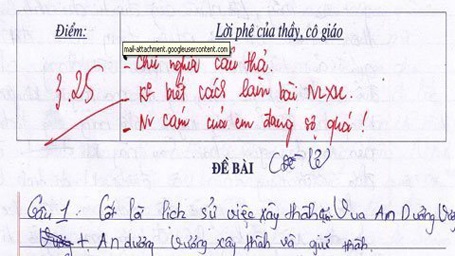 Điểm:
Lời phê của thầy, cô giáo
mail-attachment.googleusercontent.com
3,25
- Chữ người cẩu thả.
- Ko biết cách làm bài NLXH.
- Nv cảm của em đáng sợ quá!
ĐỀ BÀI
Câu 1: Cốt lõi lịch sử việc xây thành Vua An Dương
+ An dương vương xây thành và giữ thành.